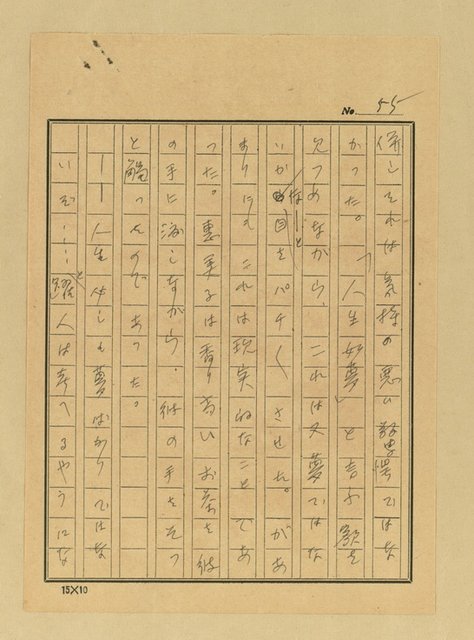 No. 55
併しそれは気持の悪い驚愕ではな
かった。「人生如夢」と言ふ額を
見つめながら、これは又夢ではな
いかな―と目をパチ〱させた。があ
まりにもこれは現実的なことであ
った。恵美子は香り高いお茶を彼
の手に渡しながら、彼の手をそっ
と触ったのであった。
――人生必しも夢ばかりではな
いぞ……と躍人は考へるやうにな
15×10